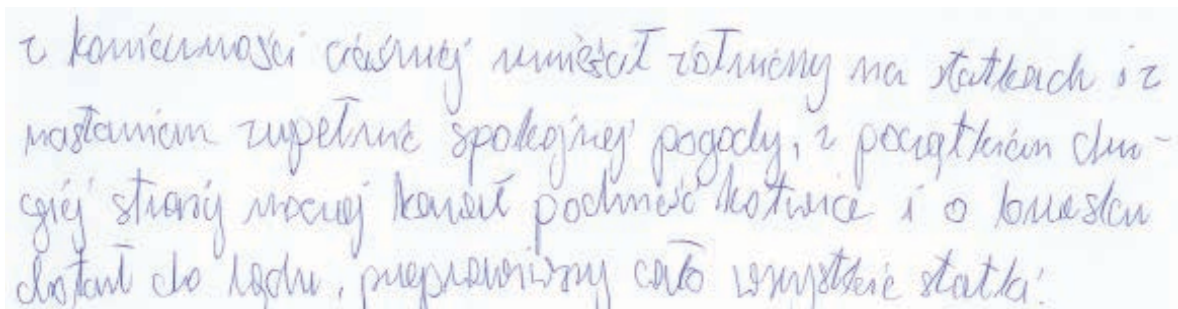 z konieczności ciaśniej umieścił żołnierzy na statkach i z
nastaniem zupełnie spokojnej pogody, z początkiem dru-
giej straży nocnej kazał podnieść kotwice i o brzasku
dotarł do lądu, przeprawiwszy cało wszystkie statki.